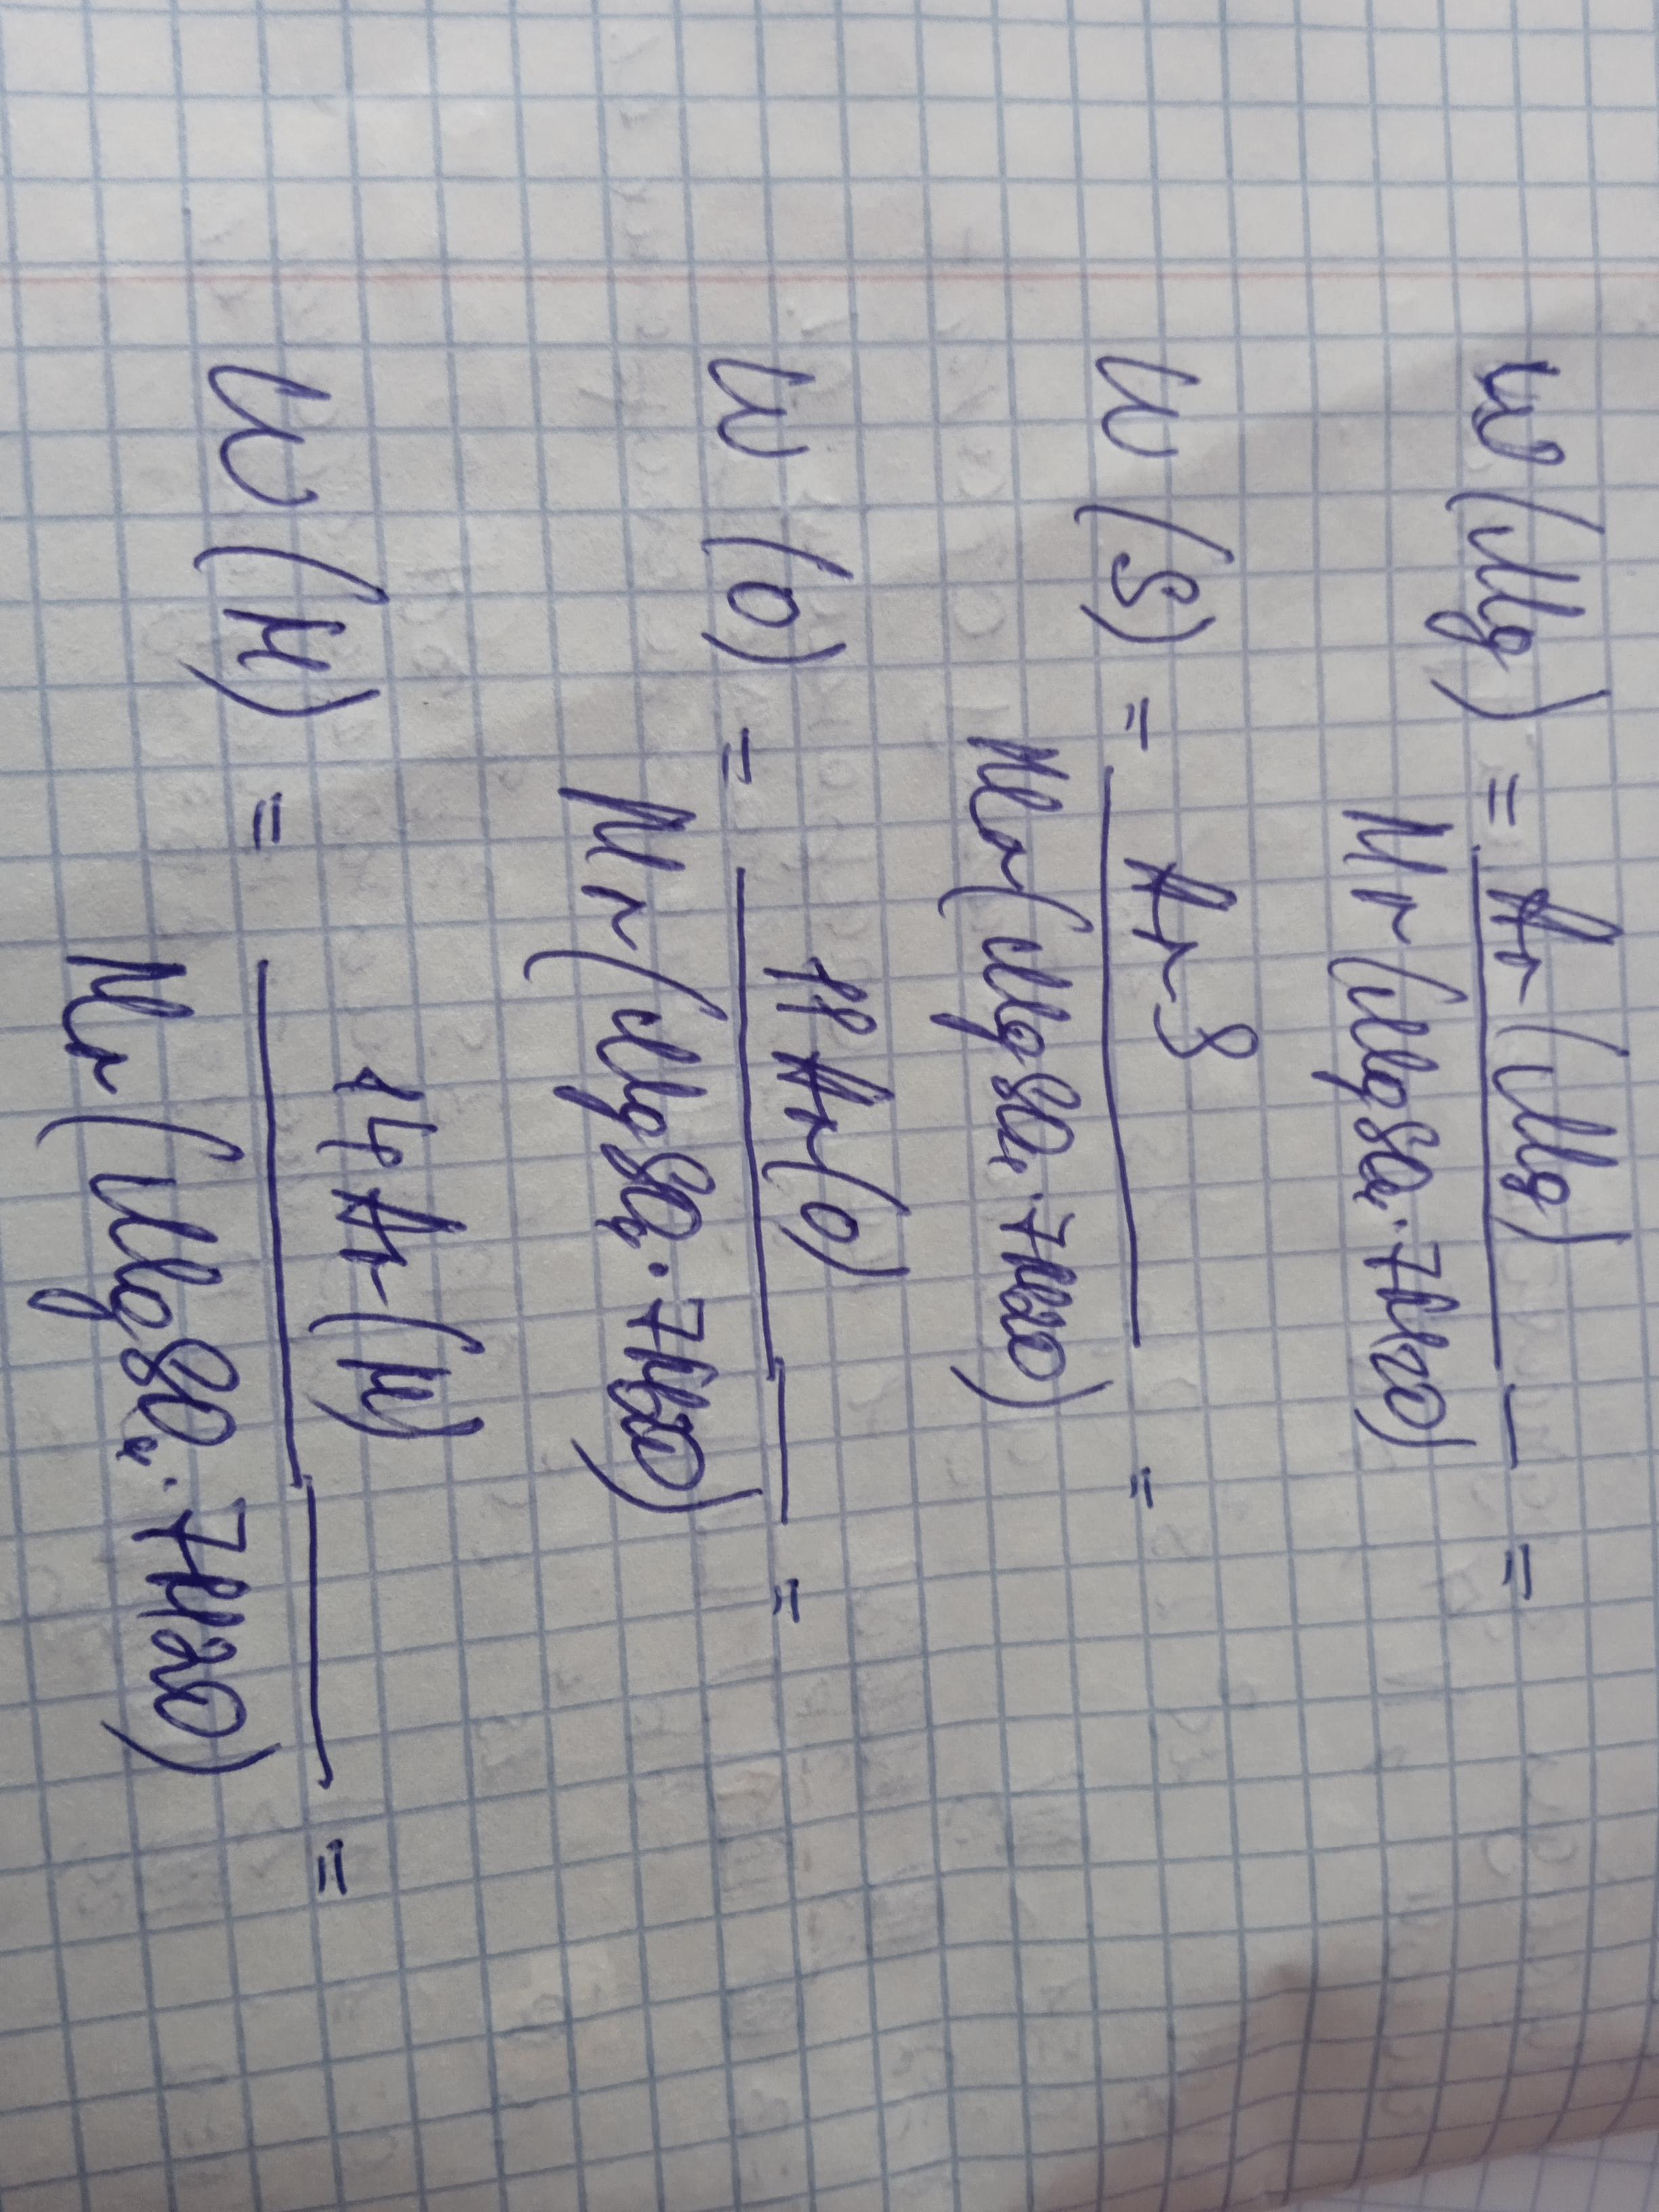 w (Mg) = Ar (Mg)
Mr (MgSO₄ · 7H2O) =
w (S) = Ar S
Mr (MgSO₄ · 7H2O) =
w (O) = 11 Ar (O)
Mr (MgSO₄ · 7H2O) =
w (H) = 14 Ar (H)
Mr (MgSO₄ · 7H2O) =